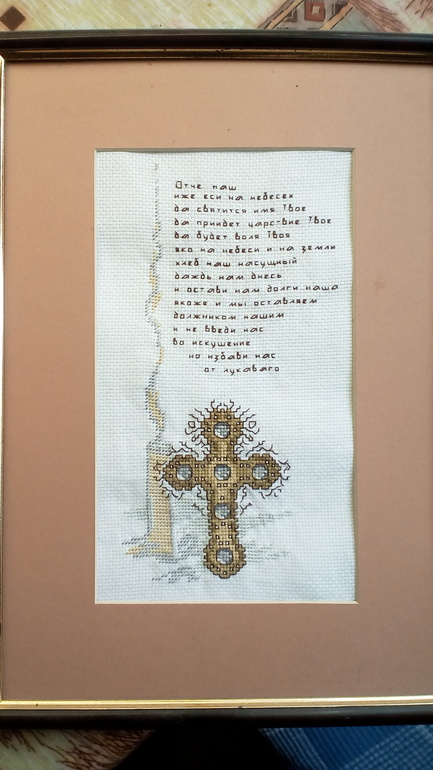 Отче наш
иже еси на небесех
да святится имя Твое
да приидет царствие Твое
да будет воля Твоя
яко на небеси и на земли
хлеб наш насущный
даждь нам днесь
и остави нам долги наша
якоже и мы оставляем
должником нашим
и не введи нас
во искушение
но избави нас
от лукаваго